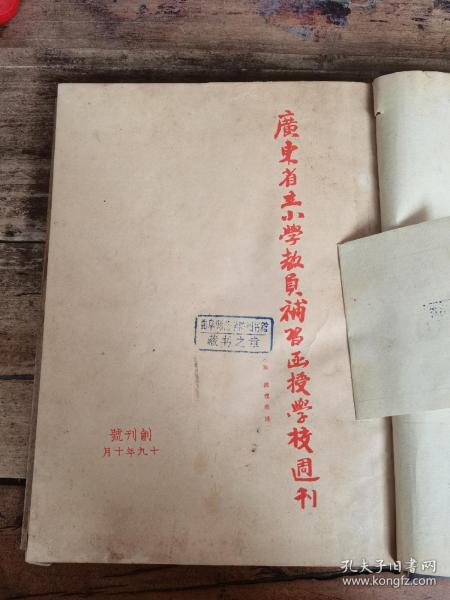 廣東省立小學教員補習函授學校週刊
藏书之章
創刊號
十九年十月
孔夫子旧书网
www.kongfz.com